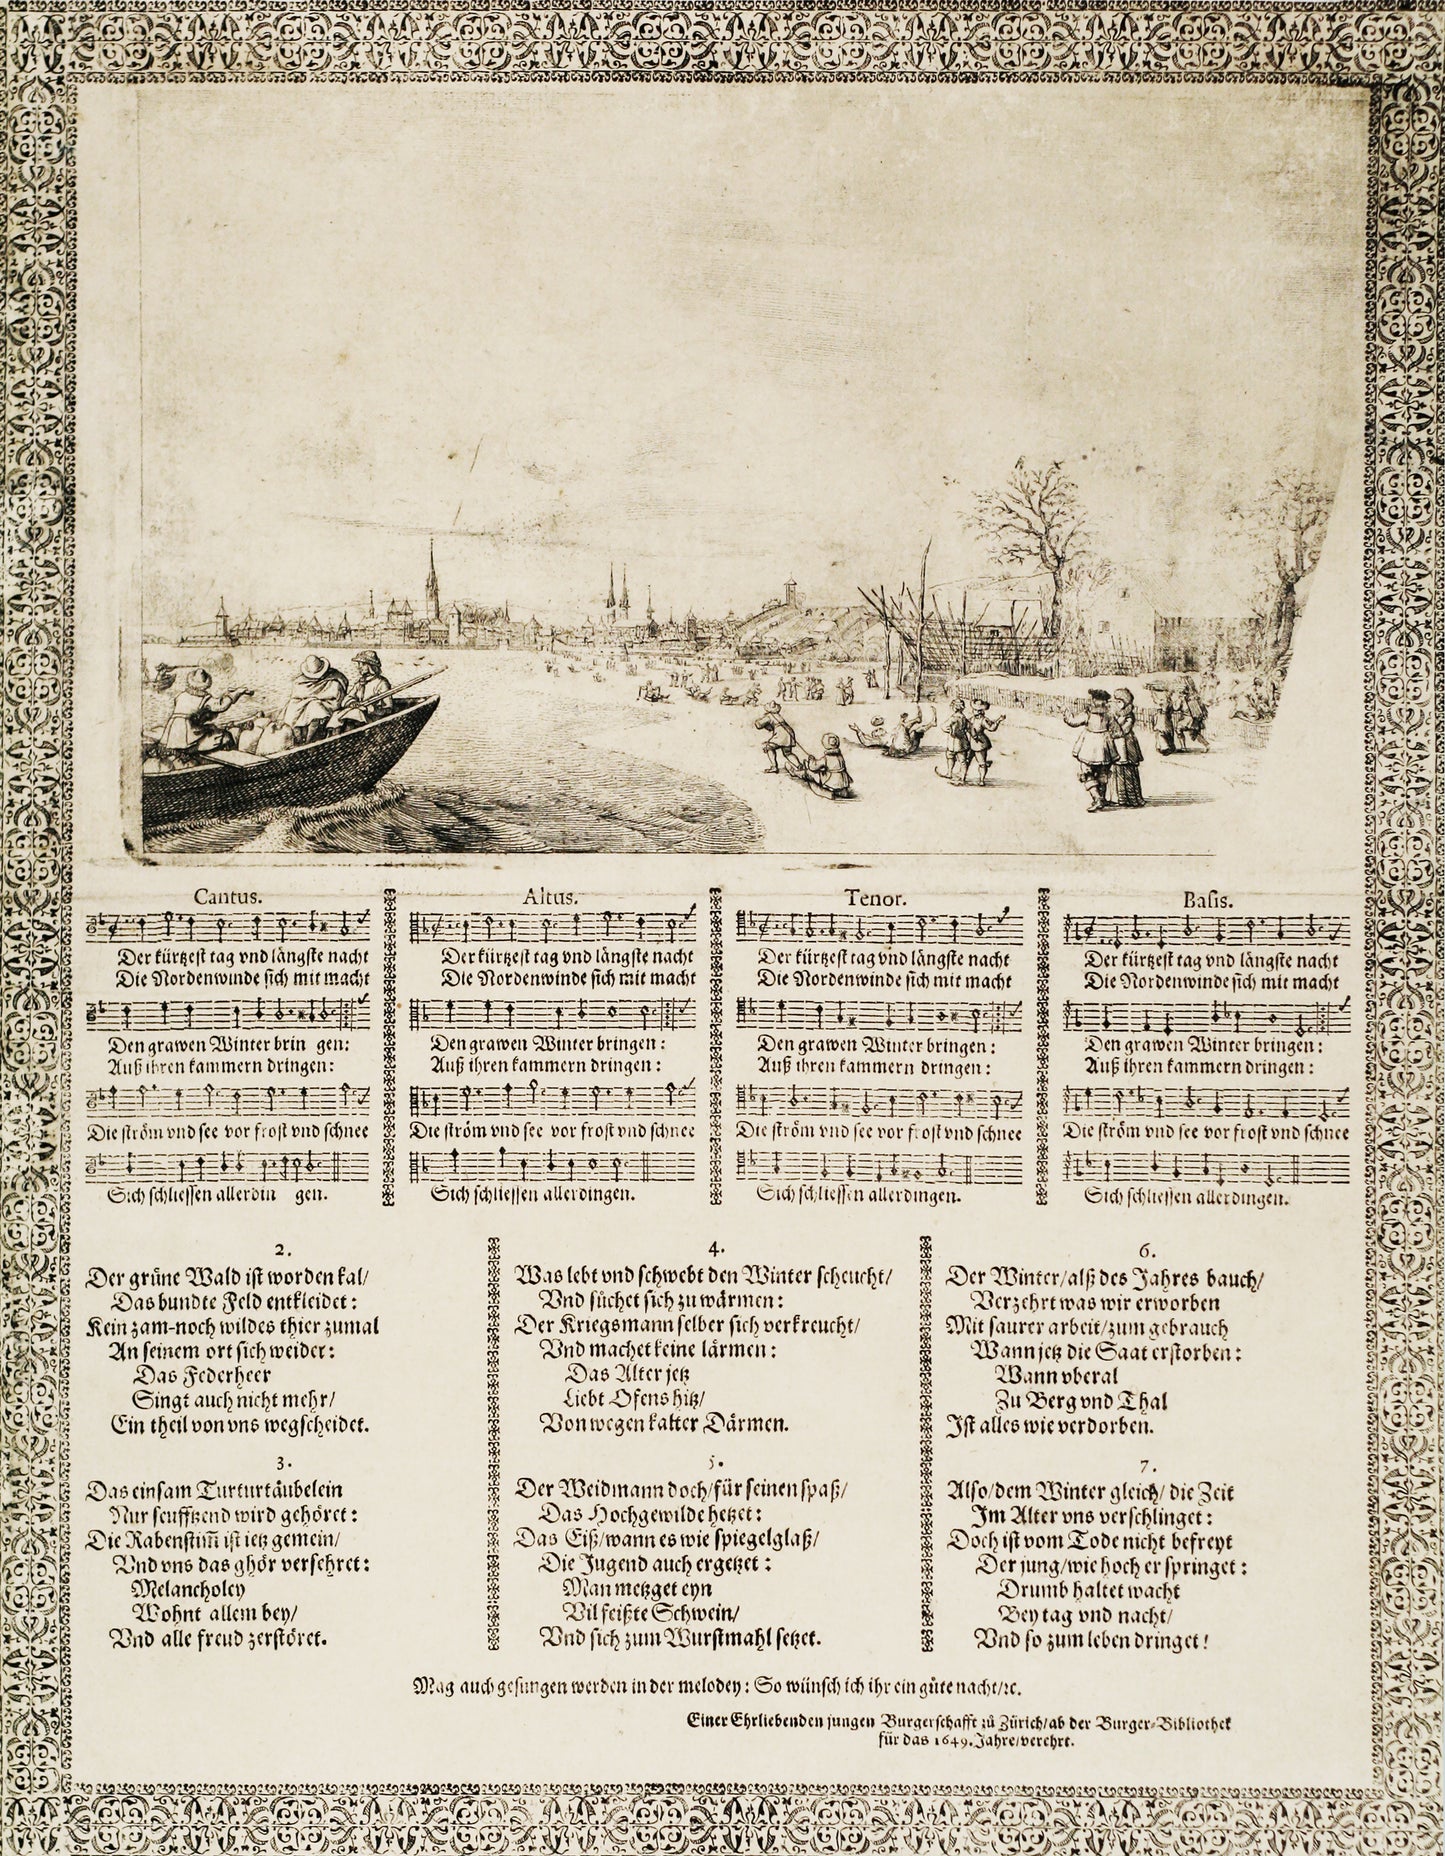 Cantus.
Der kürtzest tag vnd längste nacht
Die Nordenwinde sich mit macht
Den grawen Winter brin gen:
Auß ihren kammern dringen:
Die ström vnd see vor frost vnd schnee
Sich schliessen allerdin gen.
Altus.
Der kürtzest tag vnd längste nacht
Die Nordenwinde sich mit macht
Den grawen Winter bringen:
Auß ihren kammern dringen:
Die ström vnd see vor frost vnd schnee
Sich schliessen allerdingen.
Tenor.
Der kürtzest tag vnd längste nacht
Die Nordenwinde sich mit macht
Den grawen Winter bringen:
Auß ihren kammern dringen:
Die ström vnd see vor frost vnd schnee
Sich schliessen allerdingen.
Basis.
Der kürtzest tag vnd längste nacht
Die Nordenwinde sich mit macht
Den grawen Winter bringen:
Auß ihren kammern dringen:
Die ström vnd see vor frost vnd schnee
Sich schliessen allerdingen.
2.
Der grüne Wald ist worden kal/
Das bundte Feld entkleidet:
Kein zam-noch wildes thier zumal
An seinem ort sich weider:
Das Federheer
Singt auch nicht mehr/
Ein theil von vns wegscheidet.
3.
Das einsam Turturtäubelein
Nur seufftzend wird gehöret:
Die Rabenstim̄ ist ietz gemein/
Vnd vns das ghör versehret:
Melancholey
Wohnt allem bey/
Vnd alle freud zerstöret.
4.
Was lebt vnd schwebt den Winter scheucht/
Vnd sůchet sich zu wärmen:
Der Kriegsmann selber sich verkreucht/
Vnd machet keine lärmen:
Das Alter jetz
Liebt Ofens hitz/
Von wegen kalter Därmen.
5.
Der Weidmann doch/für seinen spaß/
Das Hochgewilde hetzet:
Das Eiß/wann es wie spiegelglaß/
Die Jugend auch ergetzet:
Man metzget eyn
Vil feißte Schwein/
Vnd sich zum Wurstmahl setzet.
6.
Der Winter/alß des Jahres bauch/
Verzehrt was wir erworben
Mit saurer arbeit/zum gebrauch
Wann jetz die Saat erstorben:
Wann vberal
Zu Berg vnd Thal
Ist alles wie verdorben.
7.
Also/dem Winter gleich/ die Zeit
Im Alter vns verschlinget:
Doch ist vom Tode nicht befreyt
Der jung/wie hoch er springet:
Drumb haltet wacht
Bey tag vnd nacht/
Vnd so zum leben dringet!
Mag auch gesungen werden in der melodey: So wünsch ich ihr ein gůte nacht/ꝛc.
Einer Ehrliebenden jungen Burgerschafft zů Zürich/ab der Burger-Bibliothek
für das 1649. Jahre/verehrt.